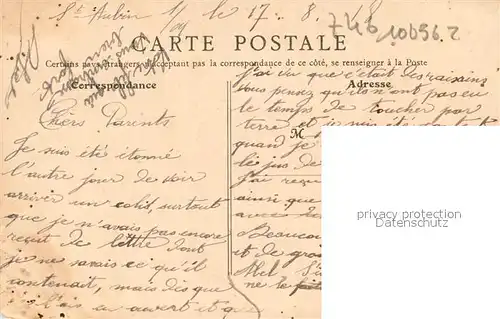 St Aubin le 17 8 18
746 100962
CARTE POSTALE
Certains pays étrangers n'acceptant pas la correspondance de ce côté, se renseigner à la Poste
Correspondance
Chers Parents
Je suis été étonné
l'autre jour de voir
arriver un colis, surtout
que je n'avais pas encore
reçut de lettre dont
je ne savais ce qu'il
contenait, mais dès que
l'ais ouvert et que
Adresse
j'ai vu que c'était des raisins
vous pensez qu'ils n'ont pas eu
le temps de toucher par
terre et je suis été
M
quand je
le jus de
J'ai reçu
ainsi que
avec
Beaucou
et de gros
Abel
ne le
privacy protection
Datenschutz